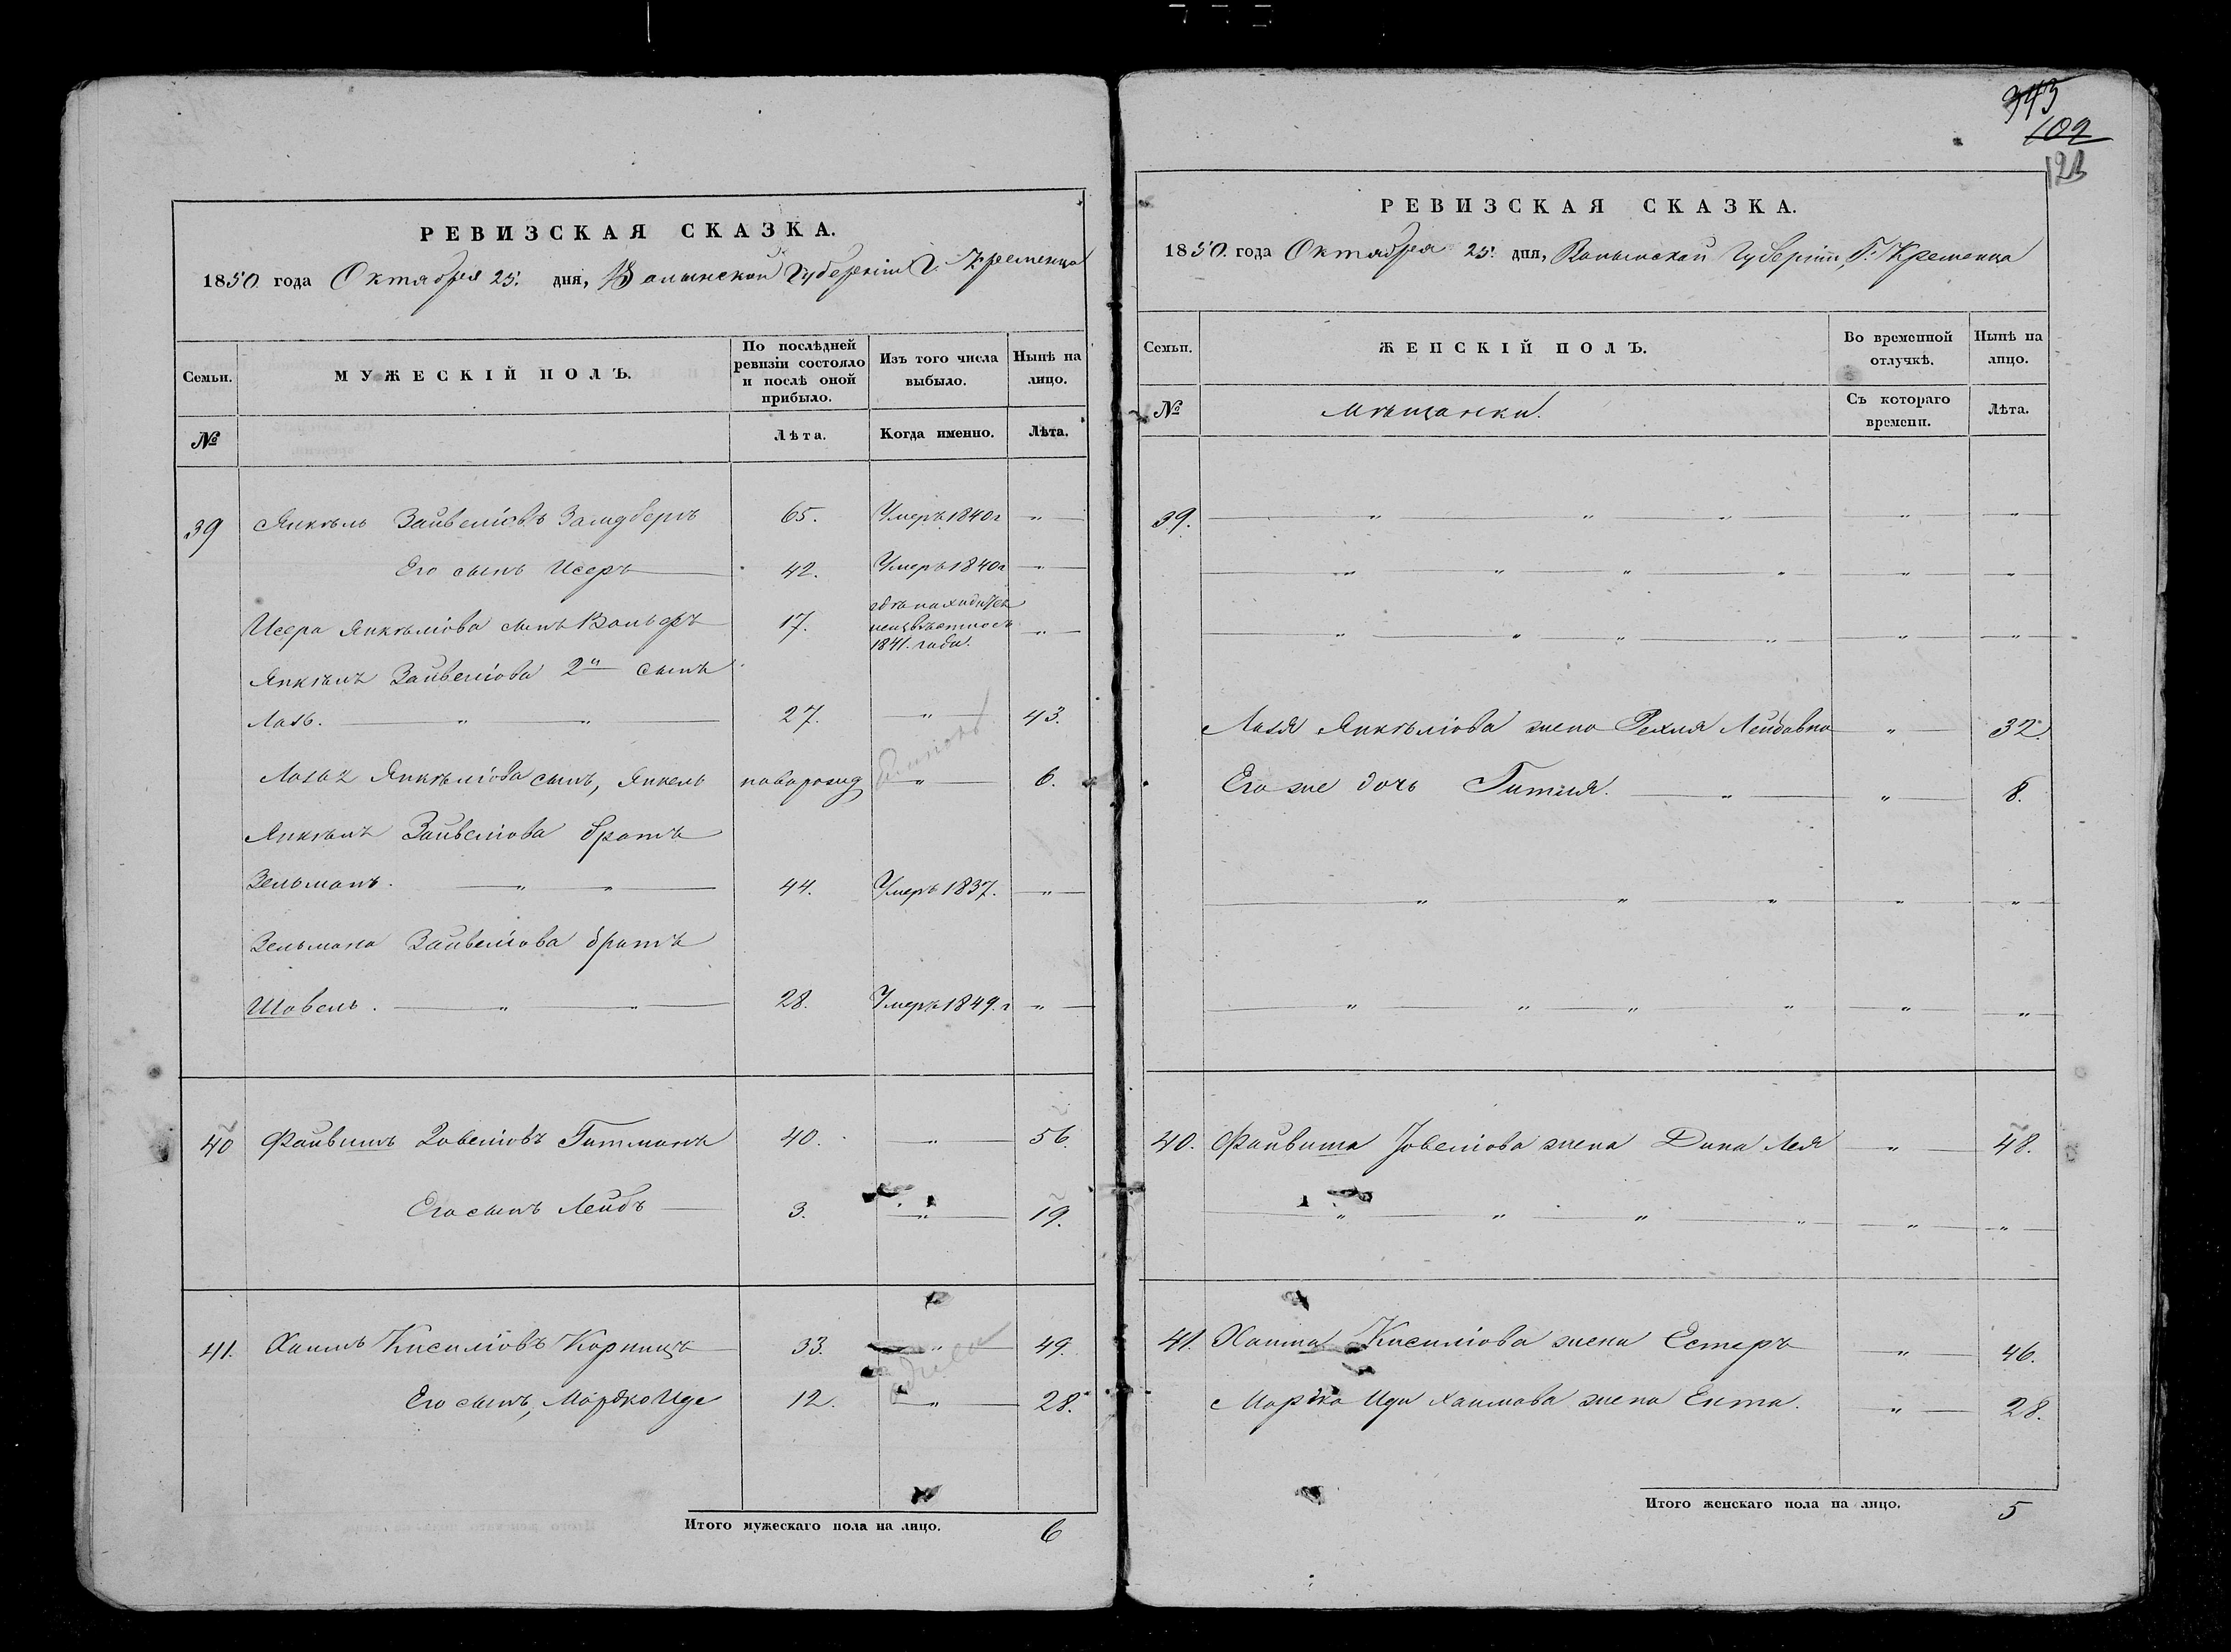 РЕВИЗСКАЯ СКАЗКА.
1850 года Октября 25. дня, Волынской Губерніи Г. Кременца
Семьи.
МУЖЕСКІЙ ПОЛЪ.
По послѣдней ревизіи состояло и послѣ оной прибыло.
Изъ того числа выбыло.
Нынѣ на лицо.
№
Лѣта.
Когда именно.
Лѣта.
39 Янкель Зайвеліовъ Замдберъ 65. Умеръ 1840 г „
Его сынъ Исеръ 42. Умеръ 1840 г „
Исера Янкѣліова сынъ Вольфъ 17. гдѣ находится неизвѣстно съ 1841. года. „
Янкѣля Зайвеліова 2й сынъ
Лазь. „ „ 27. „ 43.
Лазя Янкѣліова сынъ, Янкель новорожд „ 6.
Янкѣля Зайвеліова братъ
Зельманъ. „ „ 44. Умеръ 1837. „
Зельмана Зайвеліова братъ
Шовель. „ „ 28. Умеръ 1849. г „
40 Файвишъ Іовеліовъ Гитманъ 40. „ 56.
Его сынъ Лейбъ 3. „ 19.
41. Хаимъ Кисиліовъ Корницъ 33. „ 49.
Его сынъ, Мордко Иде 12. „ 28.
Итого мужескаго пола на лицо. 6
343
109
121
РЕВИЗСКАЯ СКАЗКА.
1850. года Октября 25. дня, Волынской Губерніи, Г. Кременца
Семьи.
ЖЕНСКІЙ ПОЛЪ.
Во временной отлучкѣ.
Нынѣ на лицо.
№
Мѣщанки.
Съ котораго времени.
Лѣта.
39. „ „ „ „ „
„ „ „ „ „ „
„ „ „ „ „ „
Лазя Янкѣліова жена Рехля Лейбовна „ 32.
Его же дочь Гитля. „ „ 8.
„ „ „ „ „
„ „ „ „ „ „
40. Файвиша Іовеліова жена Дина Лея „ 48.
„ „ „ „ „ „
41. Хаима Кисиліова жена Естеръ „ 46.
Мордка Иди Хаимова жена Ента. „ 28.
Итого женскаго пола на лицо. 5